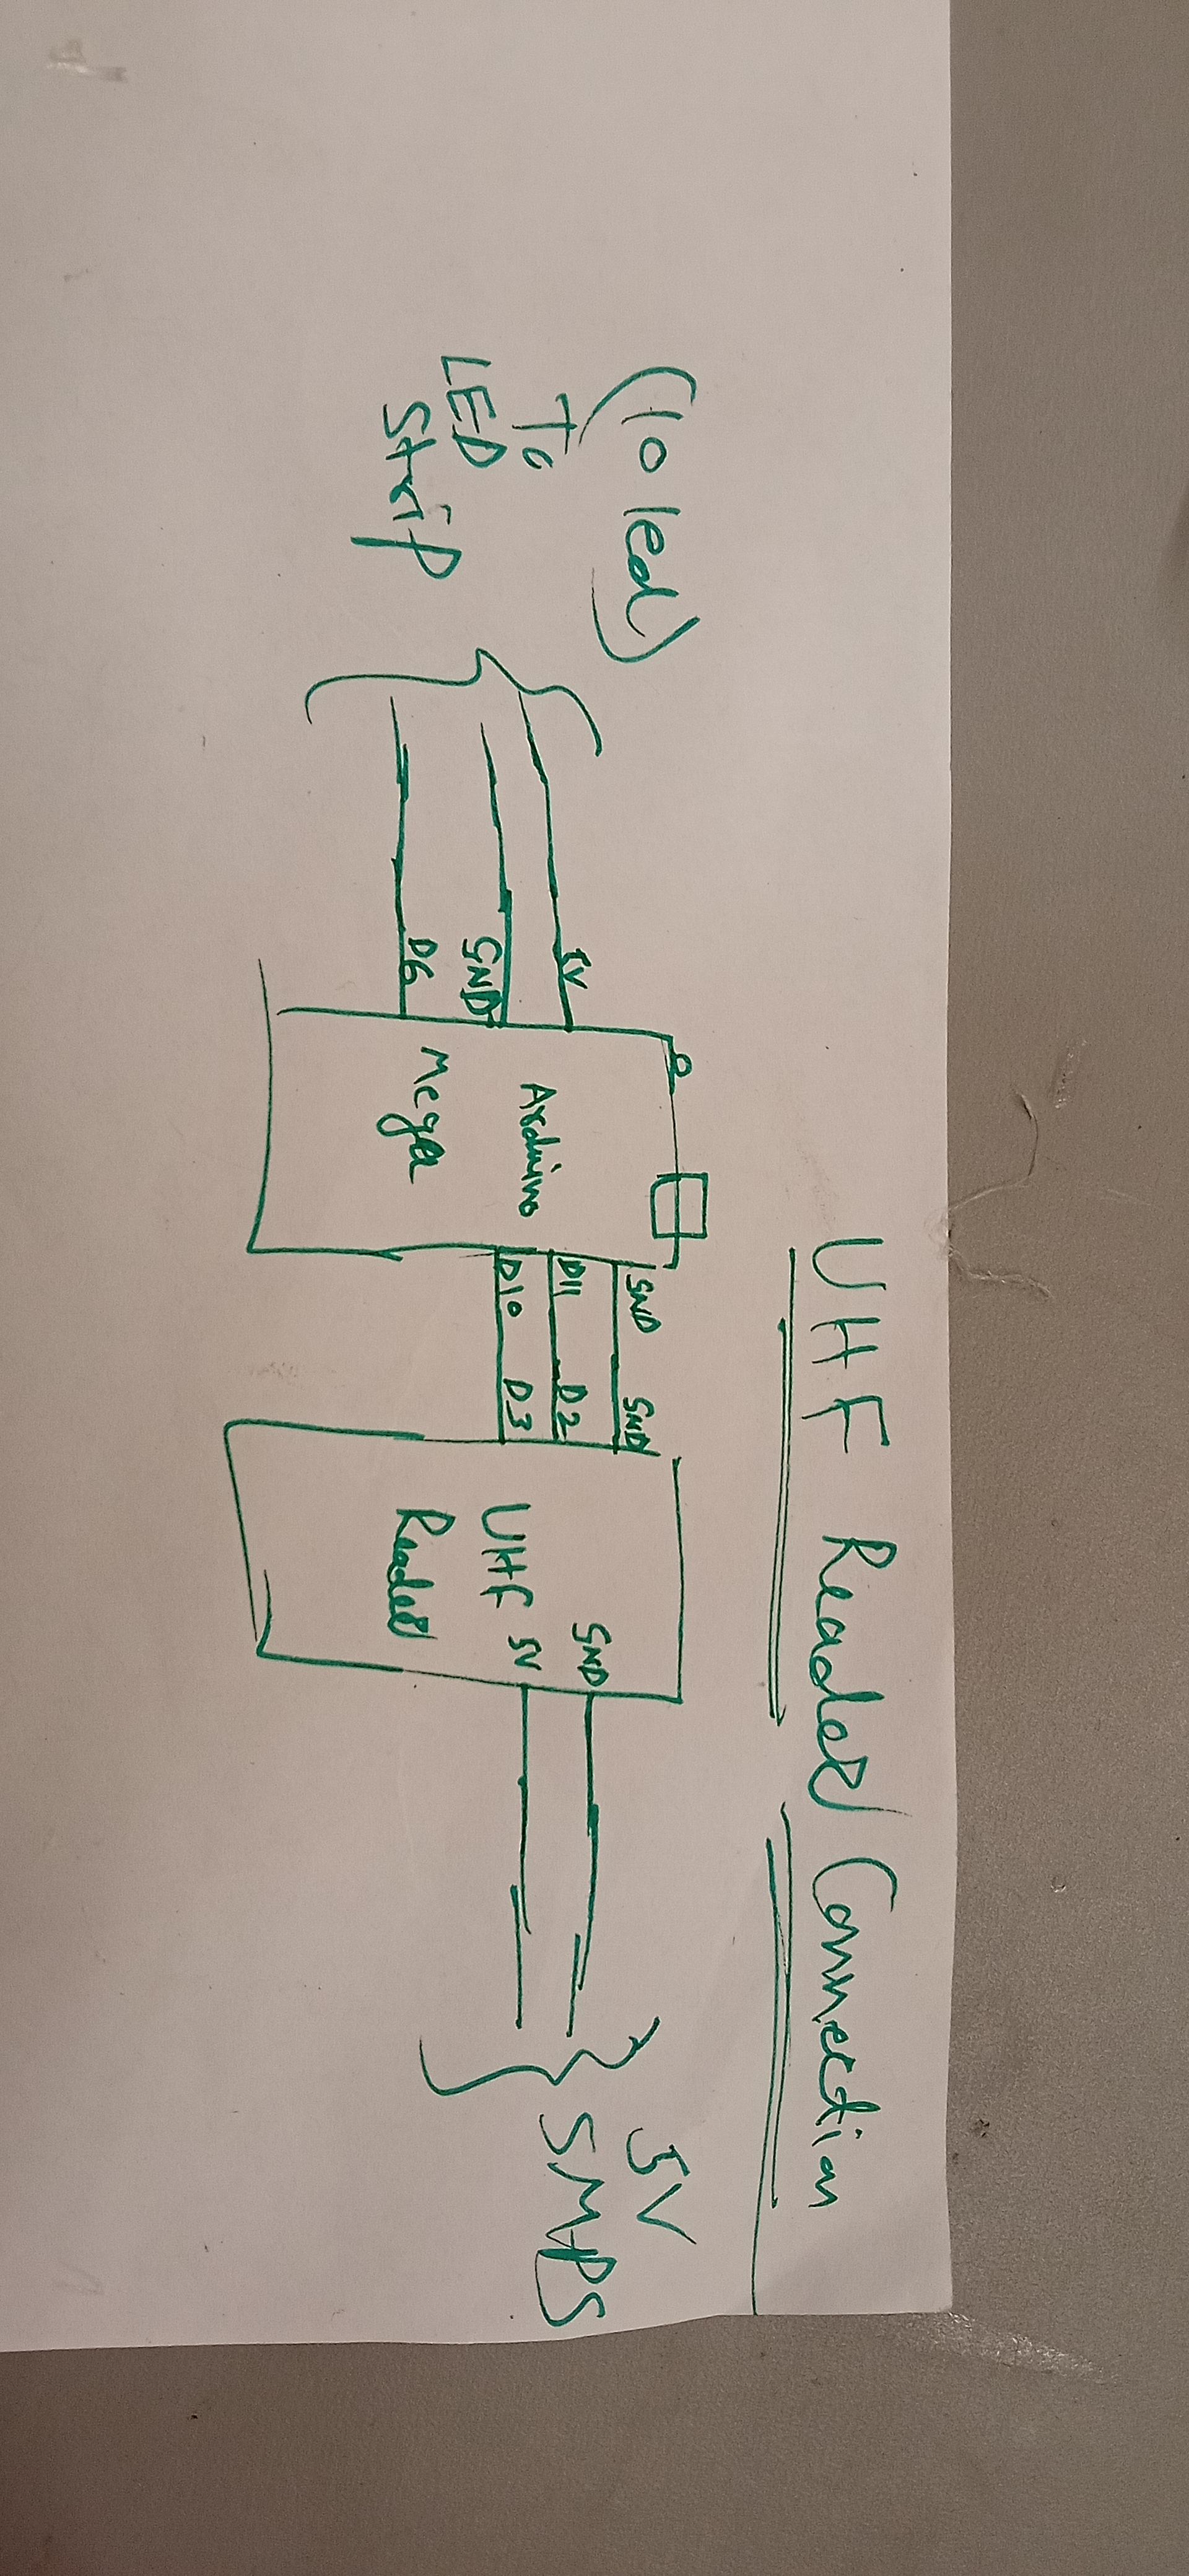 UHF Reader Connection
(10 led)
To
LED
Strip
5V
GND
D6
Arduino
Mega
GND GND
D11 D2
D10 D3
UHF
Reader
GND
5V
5V
SMPS